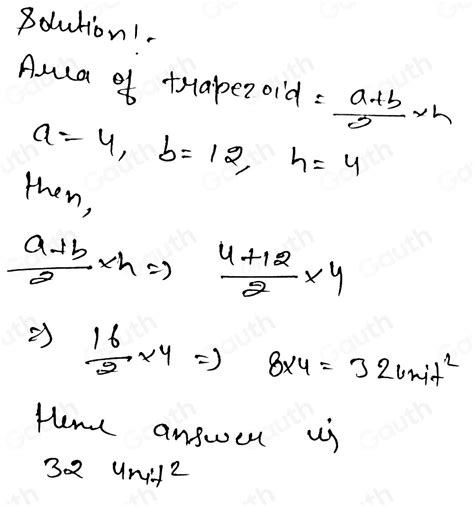 Solution:-
Area of trapezoid = a+b/2 × h
a = 4, b = 12, h = 4
then,
a+b/2 × h => 4+12/2 × 4
=> 16/2 × 4 => 8×4 = 32 unit²
Hence answer is
32 unit²
Gauth